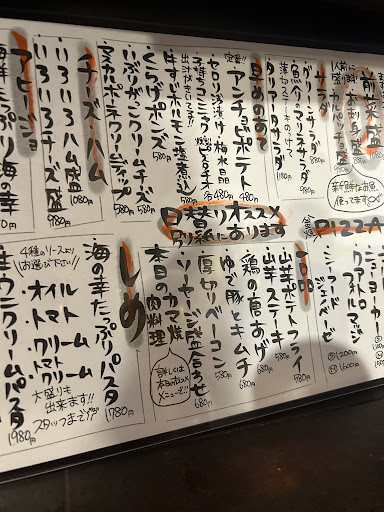 前菜盛
サラダ
グリーンサラダ
魚介のマリネサラダ
タマタマサラダ
早めのあて
定番!!
アンチョビポテト
セロリ浅漬け
梅水晶
子持ちコンニャク
燻製ピスタチオ
各480円
480円
牛すじホルモン塩煮込
580円
出汁がきいてます!!
くらげポンズ
いぶりがっこクリームチーズ
580円
マスカルポーネクリームチップ
580円
チーズ・ハム
いろいろハム盛
1080円
いろいろチーズ盛
980円
アヒージョ
海鮮たっぷり海の幸
日替りオススメ
別紙にあります
PIZZA
ニューヨーカー
クアトロフォルマッジ
シーフード
ジェノベーゼ
1,200円
1,600円
一品
山芋ポテトフライ
580円
山芋ステーキ
580円
鶏の唐あげ
680円
ゆで豚とキムチ
680円
厚切りベーコン
580円
ソーセージ盛合わせ
680円
本日のカマ焼
〃 肉料理
詳しくは
本日のおススメ
メニューで!!
しめ
海の幸たっぷりパスタ
1780円
4種のソースより
お選び下さい!!
オイル
トマト
クリーム
トマトクリーム
大盛りも
出来ます!!
スタッフまで
生ウニクリームパスタ
1980円